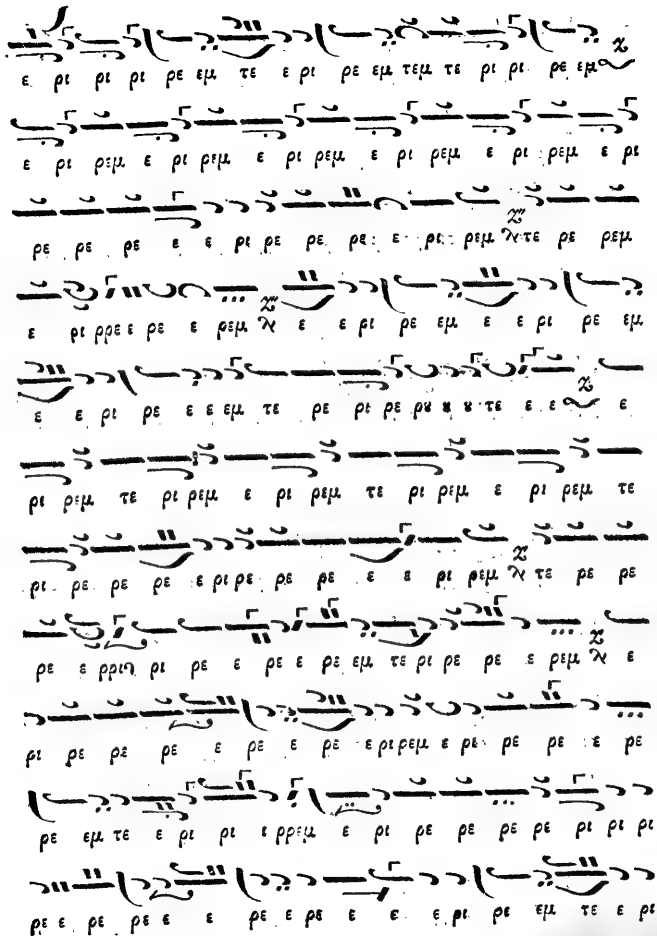 ε ρι ρι ρι ρε εμ τε ε ρι ρε εμ τεμ τε ρι ρι ρε εμ
ε ρι ρεμ ε ρι ρεμ ε ρι ρεμ ε ρι ρεμ ε ρι ρεμ ε ρι
ρε ρε ρε ε ε ρι ρι ρε ρε ρε ε ρι ρεμ τε ρε ρεμ
ε ρι ρρε ε ρε ε ρεμ ε ε ρι ρε εμ ε ε ρι ρε εμ
ε ε ρι ρε ε ε εμ τε ρε ρι ρε ρȣ ȣ ȣ τε ε ε ε
ρι ρεμ τε ρι ρεμ ε ρι ρεμ τε ρι ρεμ ε ρι ρεμ τε
ρι ρε ρε ρε ε ρι ρε ρε ρε ε ε ρι ρεμ τε ρε ρε
ρε ε ρρι ρι ρε ε ρε ε ρε εμ τε ρι ρε ρε ε ρεμ ε
ρι ρε ρε ρε ε ρε ε ρε ε ρι ρεμ ε ρε ρε ρε ε ρε
ρε εμ τε ε ρι ρι ι ρρεμ ε ρι ρε ρε ρε ρε ρι ρι ρι
ρε ε ρε ρε ε ε ρε ε ρε ε ε ε ρι ρι εμ τε ε ρι